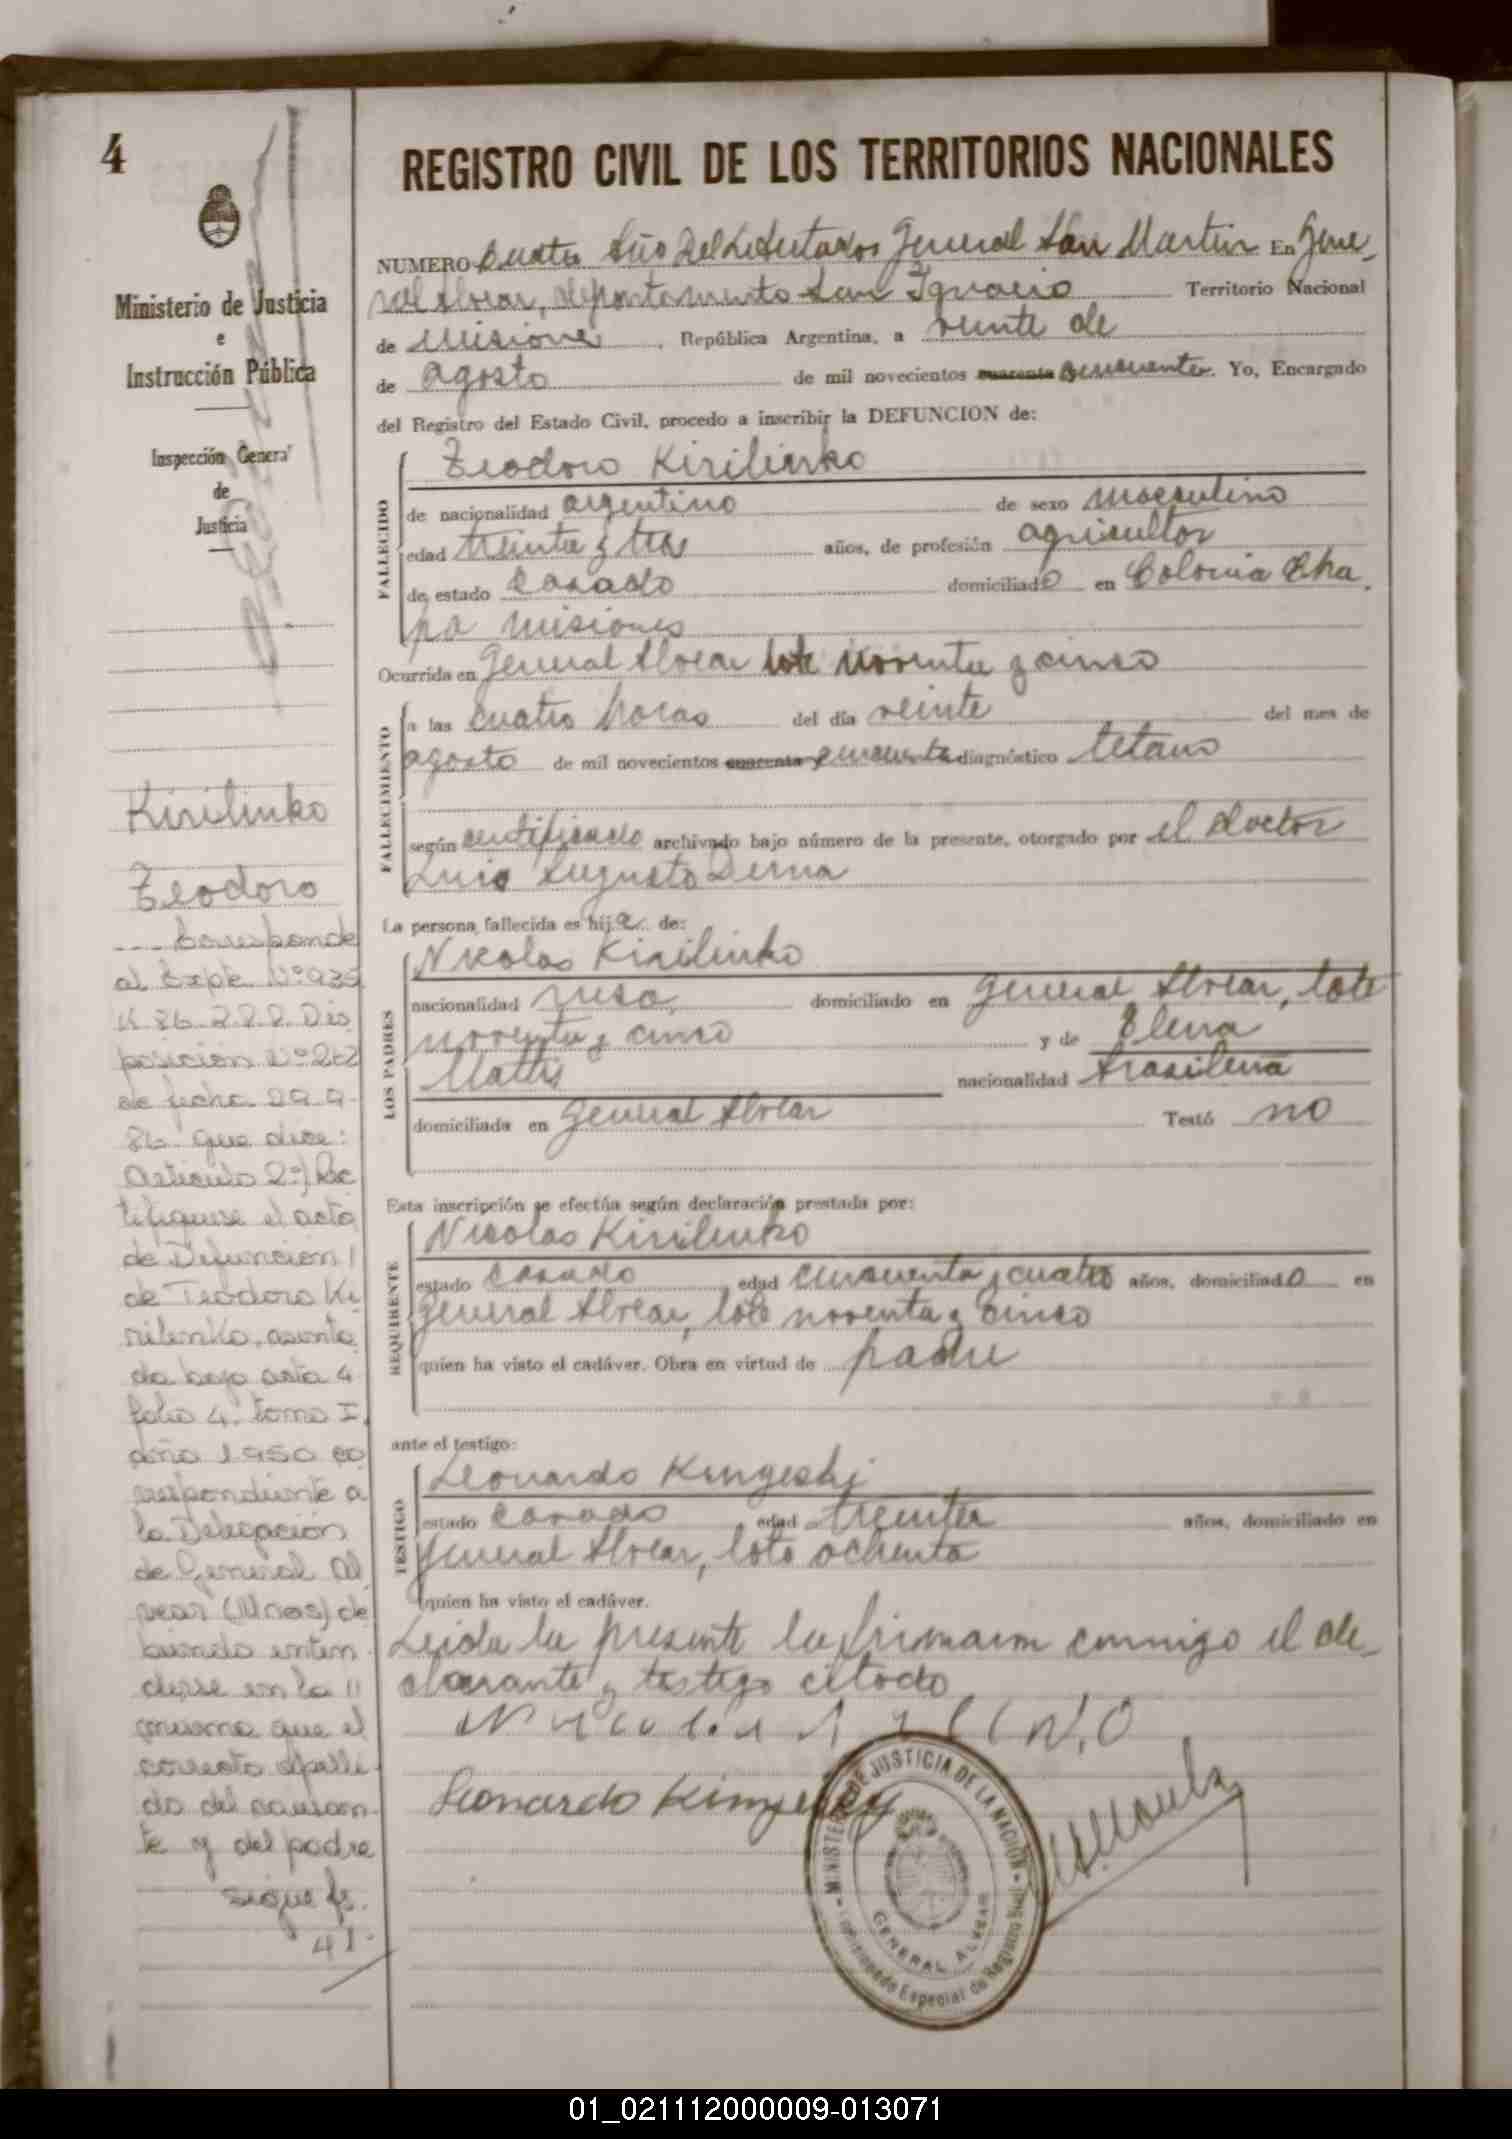 4
Ministerio de Justicia
e
Instrucción Pública
Inspección General
de
Justicia
Kirilinko
Teodoro
--- Corresponde
al Expte. Nº 935
K 86 222. Dis
posición Nº 262
de fecha 29.9.
86 que dice:
Artículo 2º) Rec
tifiquese el acta
de Defuncion
de Teodoro Ki
rilenko, asenta
da bajo acta 4
folio 4, tomo I,
año 1950 co
rrespondiente a
la Delegación
de General Al
vear (Mnes) de
biendo enten
derse en la
misma que el
correcto apelli
do del causan-
te y del padre
sigue fs.
41.
REGISTRO CIVIL DE LOS TERRITORIOS NACIONALES
NUMERO Cuatro Año Del Libertador General San Martin En Gene_
ral Alvear, departamento San Ignacio Territorio Nacional
de Misiones, República Argentina, a veinte de
de agosto de mil novecientos cuarenta cincuenta. Yo, Encargado
del Registro del Estado Civil, procedo a inscribir la DEFUNCION de:
FALLECIDO
Teodoro Kirilinko
de nacionalidad argentino de sexo masculino
edad treinta y tres años, de profesión agricultor
de estado casado domiciliado en Colonia Cha
pa misiones
Ocurrida en General Alvear lote noventa y cinco
FALLECIMIENTO
a las cuatro horas del día veinte del mes de
agosto de mil novecientos cuarenta y cincuenta diagnóstico tetano
según certificado archivado bajo número de la presente, otorgado por el doctor
Luis Augusto Derna
La persona fallecida es hijo de:
LOS PADRES
Nicolas Kirilinko
nacionalidad rusa, domiciliado en General Alvear, lote
noventa y cinco y de Elena
Mattis nacionalidad brasilena
domiciliada en General Alvear Testó no
Esta inscripción se efectúa según declaración prestada por:
REQUIRENTE
Nicolas Kirilenko
estado casado edad cincuenta y cuatro años, domiciliado en
General Alvear, lote noventa y cinco
quien ha visto el cadáver. Obra en virtud de padre
ante el testigo:
TESTIGO
Leonardo Kingeski
estado casado edad treinta años, domiciliado en
General Alvear, lote ochenta
quien ha visto el cadáver.
Leida la presente la firmaron conmigo el de_
clarante y testigo citado
Leonardo
MINISTERIO DE JUSTICIA DE LA NACIÓN
GENERAL ALVEAR
Especial de Registro Civil
01_021112000009-013071